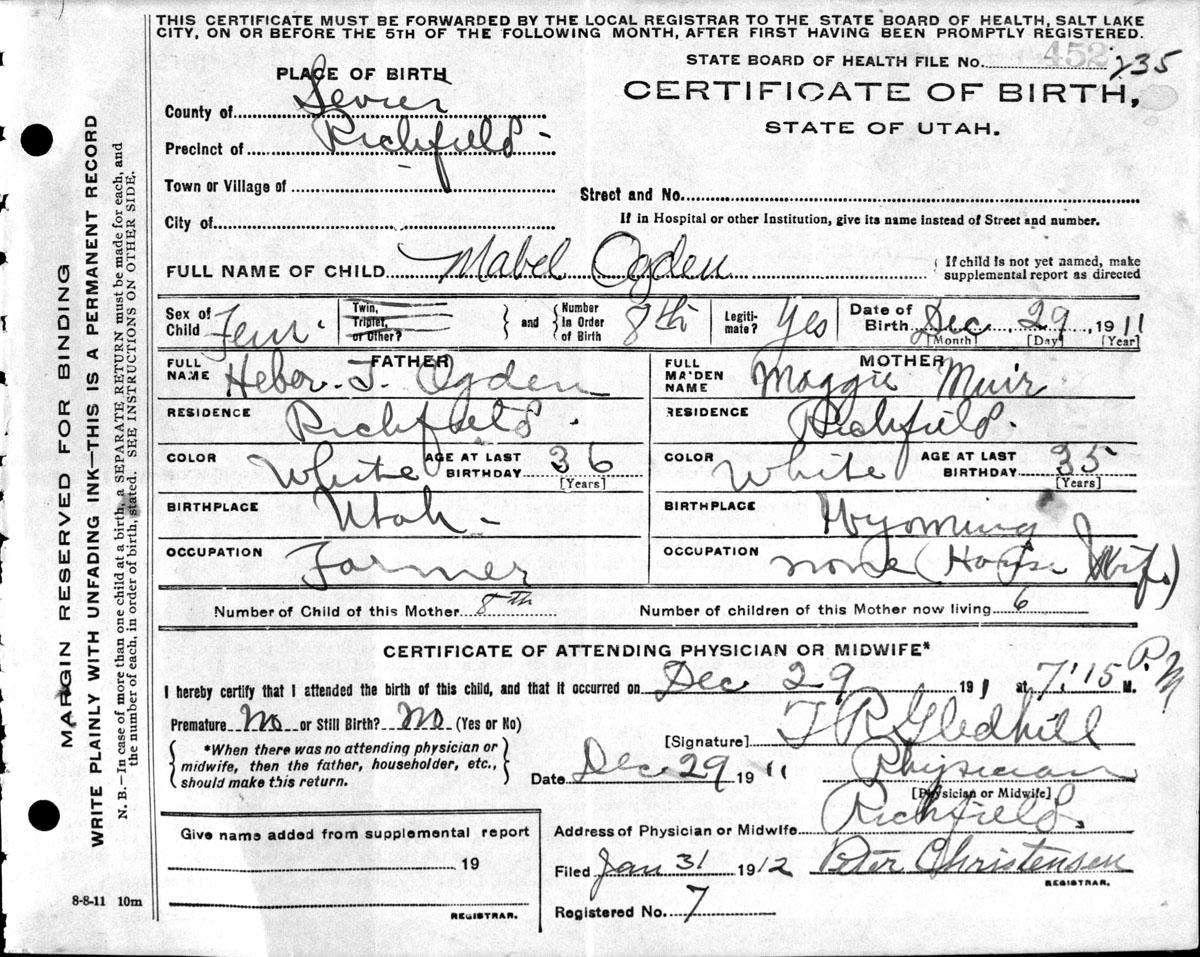 THIS CERTIFICATE MUST BE FORWARDED BY THE LOCAL REGISTRAR TO THE STATE BOARD OF HEALTH, SALT LAKE
CITY, ON OR BEFORE THE 5TH OF THE FOLLOWING MONTH, AFTER FIRST HAVING BEEN PROMPTLY REGISTERED.
STATE BOARD OF HEALTH FILE No. 452 235
PLACE OF BIRTH
CERTIFICATE OF BIRTH,
STATE OF UTAH.
County of Sevier
Precinct of Richfield
Town or Village of
Street and No.
City of
If in Hospital or other Institution, give its name instead of Street and number.
FULL NAME OF CHILD Mabel Ogden
{ If child is not yet named, make
supplemental report as directed
Sex of Child Fem.
Twin, Triplet, or Other?
and
Number In Order of Birth 8th
Legitimate? Yes
Date of Birth Dec 29, 1911
[Month] [Day] [Year]
FATHER
FULL NAME Heber. J. Ogden
MOTHER
FULL MAIDEN NAME Maggie Muir
RESIDENCE Richfield.
RESIDENCE Richfield.
COLOR White AGE AT LAST BIRTHDAY 36 [Years]
COLOR White AGE AT LAST BIRTHDAY 35 [Years]
BIRTHPLACE Utah -
BIRTHPLACE Wyoming
OCCUPATION Farmer
OCCUPATION none (House Wife)
Number of Child of this Mother 8th
Number of children of this Mother now living 6
CERTIFICATE OF ATTENDING PHYSICIAN OR MIDWIFE*
I hereby certify that I attended the birth of this child, and that it occurred on Dec 29 191 1 at 7:15 P. M M.
Premature No or Still Birth? No (Yes or No)
*When there was no attending physician or
midwife, then the father, householder, etc.,
should make this return.
[Signature] T R Gledhill
Date Dec 29 1911
Physician
[Physician or Midwife]
Address of Physician or Midwife Richfield.
Give name added from supplemental report
19
REGISTRAR.
Filed Jan 31 1912 Peter Christensen
REGISTRAR.
Registered No. 7
8-8-11 10m
MARGIN RESERVED FOR BINDING
WRITE PLAINLY WITH UNFADING INK—THIS IS A PERMANENT RECORD
N. B.—In case of more than one child at a birth, a SEPARATE RETURN must be made for each, and
the number of each, in order of birth, stated. SEE INSTRUCTIONS ON OTHER SIDE.